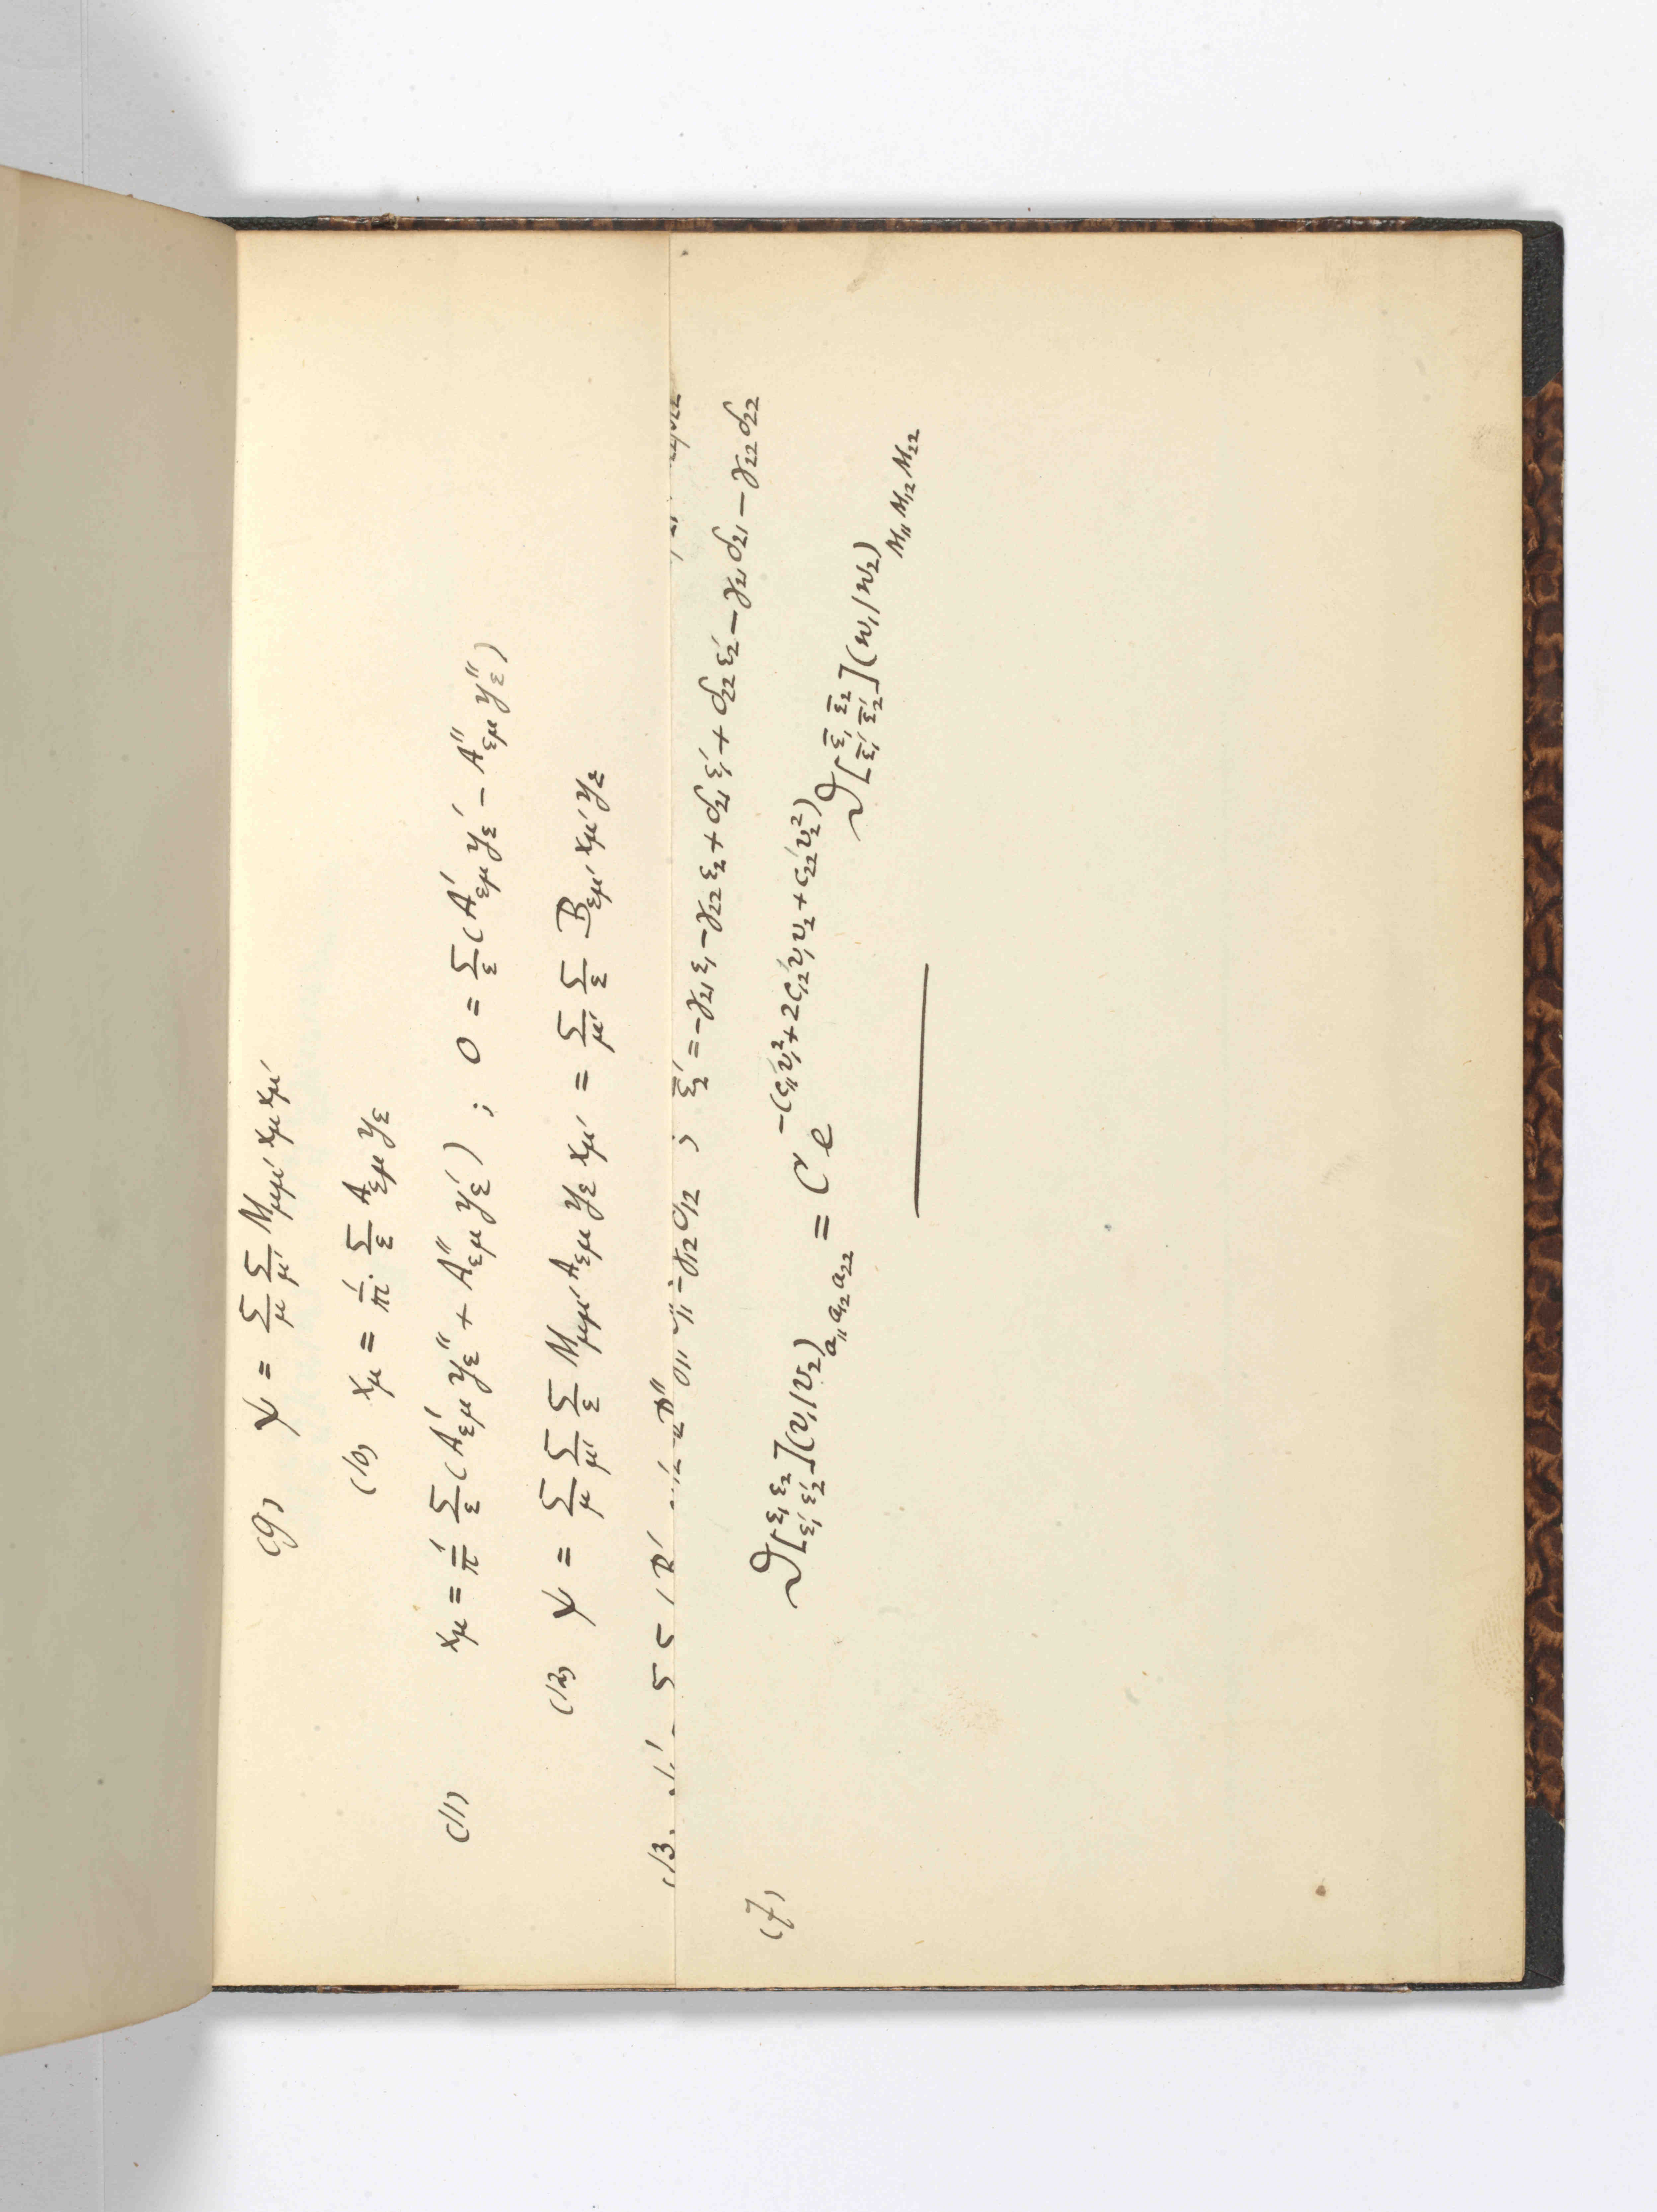 (9) ψ = Σ_μ Σ_μ' M_μμ' x_μ x_μ'
(10) x_μ = 1/πi · Σ_ε A_εμ y_ε
(11) x_μ = 1/π Σ_ε (A'_εμ y''_ε + A''_εμ y'_ε) ; 0 = Σ_ε (A'_εμ y'_ε − A''_εμ y''_ε)
(12) ψ = Σ_μ Σ_μ' Σ_ε M_μμ' A_εμ y_ε x_μ' = Σ_μ' Σ_ε B_εμ' x_μ' y_ε
(13
; ε̄'_2 = −γ_21 ε_1 − γ_22 ε_2 + δ_21 ε'_1 + δ_22 ε'_2 − γ_21 δ_21 − γ_22 δ_22
(7) ϑ[ε_1 ε_2 / ε'_1 ε'_2](v_1|v_2)_{a_11 a_12 a_22} = C e^{−(c'_11 v_1^2 + 2c'_12 v_1 v_2 + c'_22 v_2^2)} ϑ[ε̄_1 ε̄_2 / ε̄'_1 ε̄'_2](w_1|w_2)_{M_11 M_12 M_22}